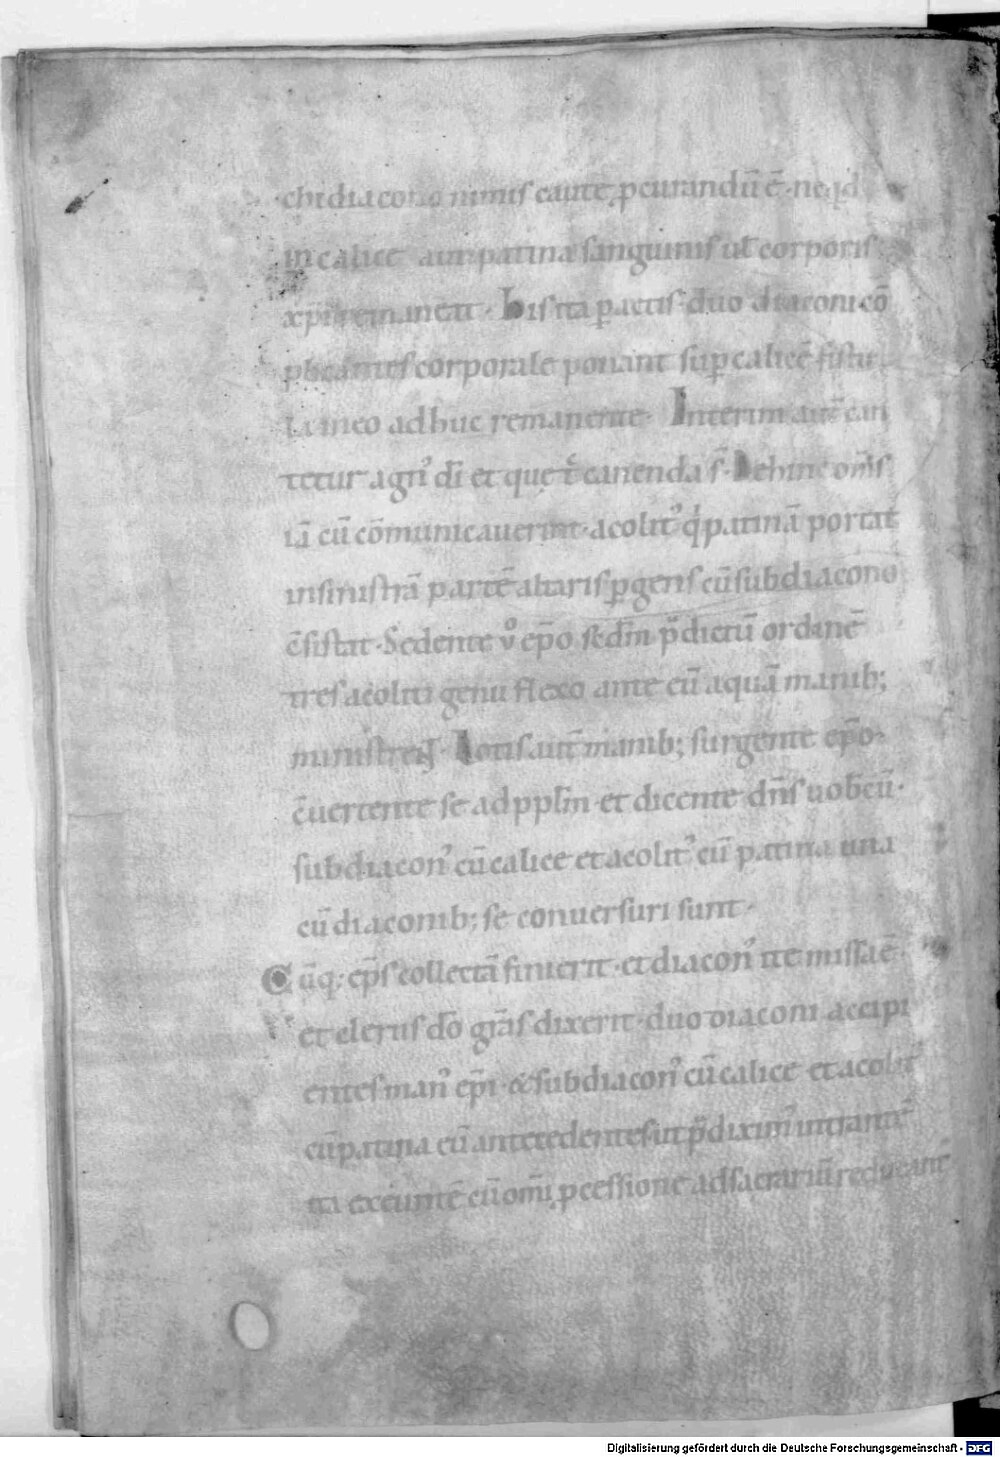 chidiacono nimis caute ꝓcurandū ē· ne qd
in calice aut patina sanguinis ut̄ corporis
xp̄i remaneat· his ita ꝑactis· duo diaconi cō
plicantes corporale ponant suꝑ calicē· fistu
la in eo adhuc remanente· Interim aut̄ can
tetur agn᾿ dī et quę t̄ canenda s̄· Dehinc om̄s
iā cū cōmunicauerint· acolit᾿ q̇ patinā portat
in sinistrā partē altaris ꝑgens cū subdiacono
c̄sistat· Sedente v̊ ep̄o sedm̄ p̄dictū ordinē
tres acoliti genu flexo ante eū aquā manib;
ministrent· Lotis aut̄ manib; surgente ep̄o·
c̄uertente se ad ppl̄m et dicente dn̄s uobcū·
subdiacon᾿ cū calice et acolit᾿ cū patina una
cū diaconib; se conuersuri sunt·
Cūq; ep̄s collectā finierit· et diacon᾿ ite missa ē·
et clerus dō gr̄as dixerit· duo diaconi accipi
entes man᾿ ep̄i· & subdiacon᾿ cū calice et acolit᾿
cū patina eū antecedentes ut p̄dixim᾿ intrant᾿
ita exeuntē cū om̄i ꝓcessione ad sacrariū reducant
Digitalisierung gefördert durch die Deutsche Forschungsgemeinschaft - DFG